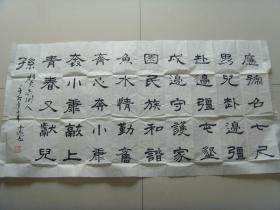 應號召七尺
男兒赴邊疆
赴邊疆屯墾
戍邊守護家
園民族和諧
魚水情勤奮
齊心奔小康
奔小康獻上
青春又獻兒
孫